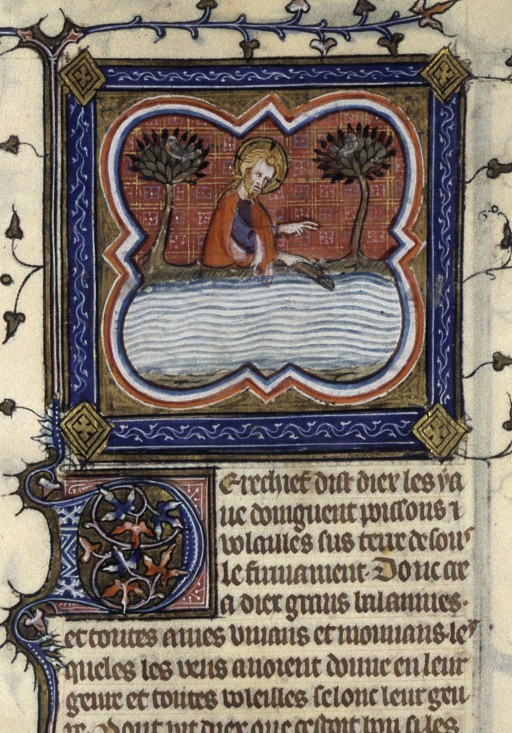 Derechief dist diex les ya
ue doinguent poissons ⁊
volailles sus terre de sous
le firmament. Donc cre
a diex grans balainnes.
et toutes ames vivans et mouvans. les
queles les yeus avoient donne en leur
genre et toutes voleilles selonc leur gen
re. Dont vit diex que cestoit bon si les